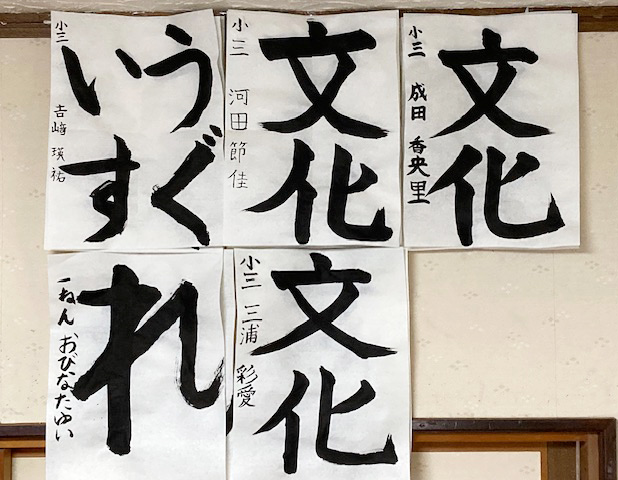 文化
小三 成田 香央里
文化
小三 河田節佳
うぐ
いす
小三 吉﨑 瑛祐
文化
小三 三浦 彩愛
れ
一ねん おびなたゆい